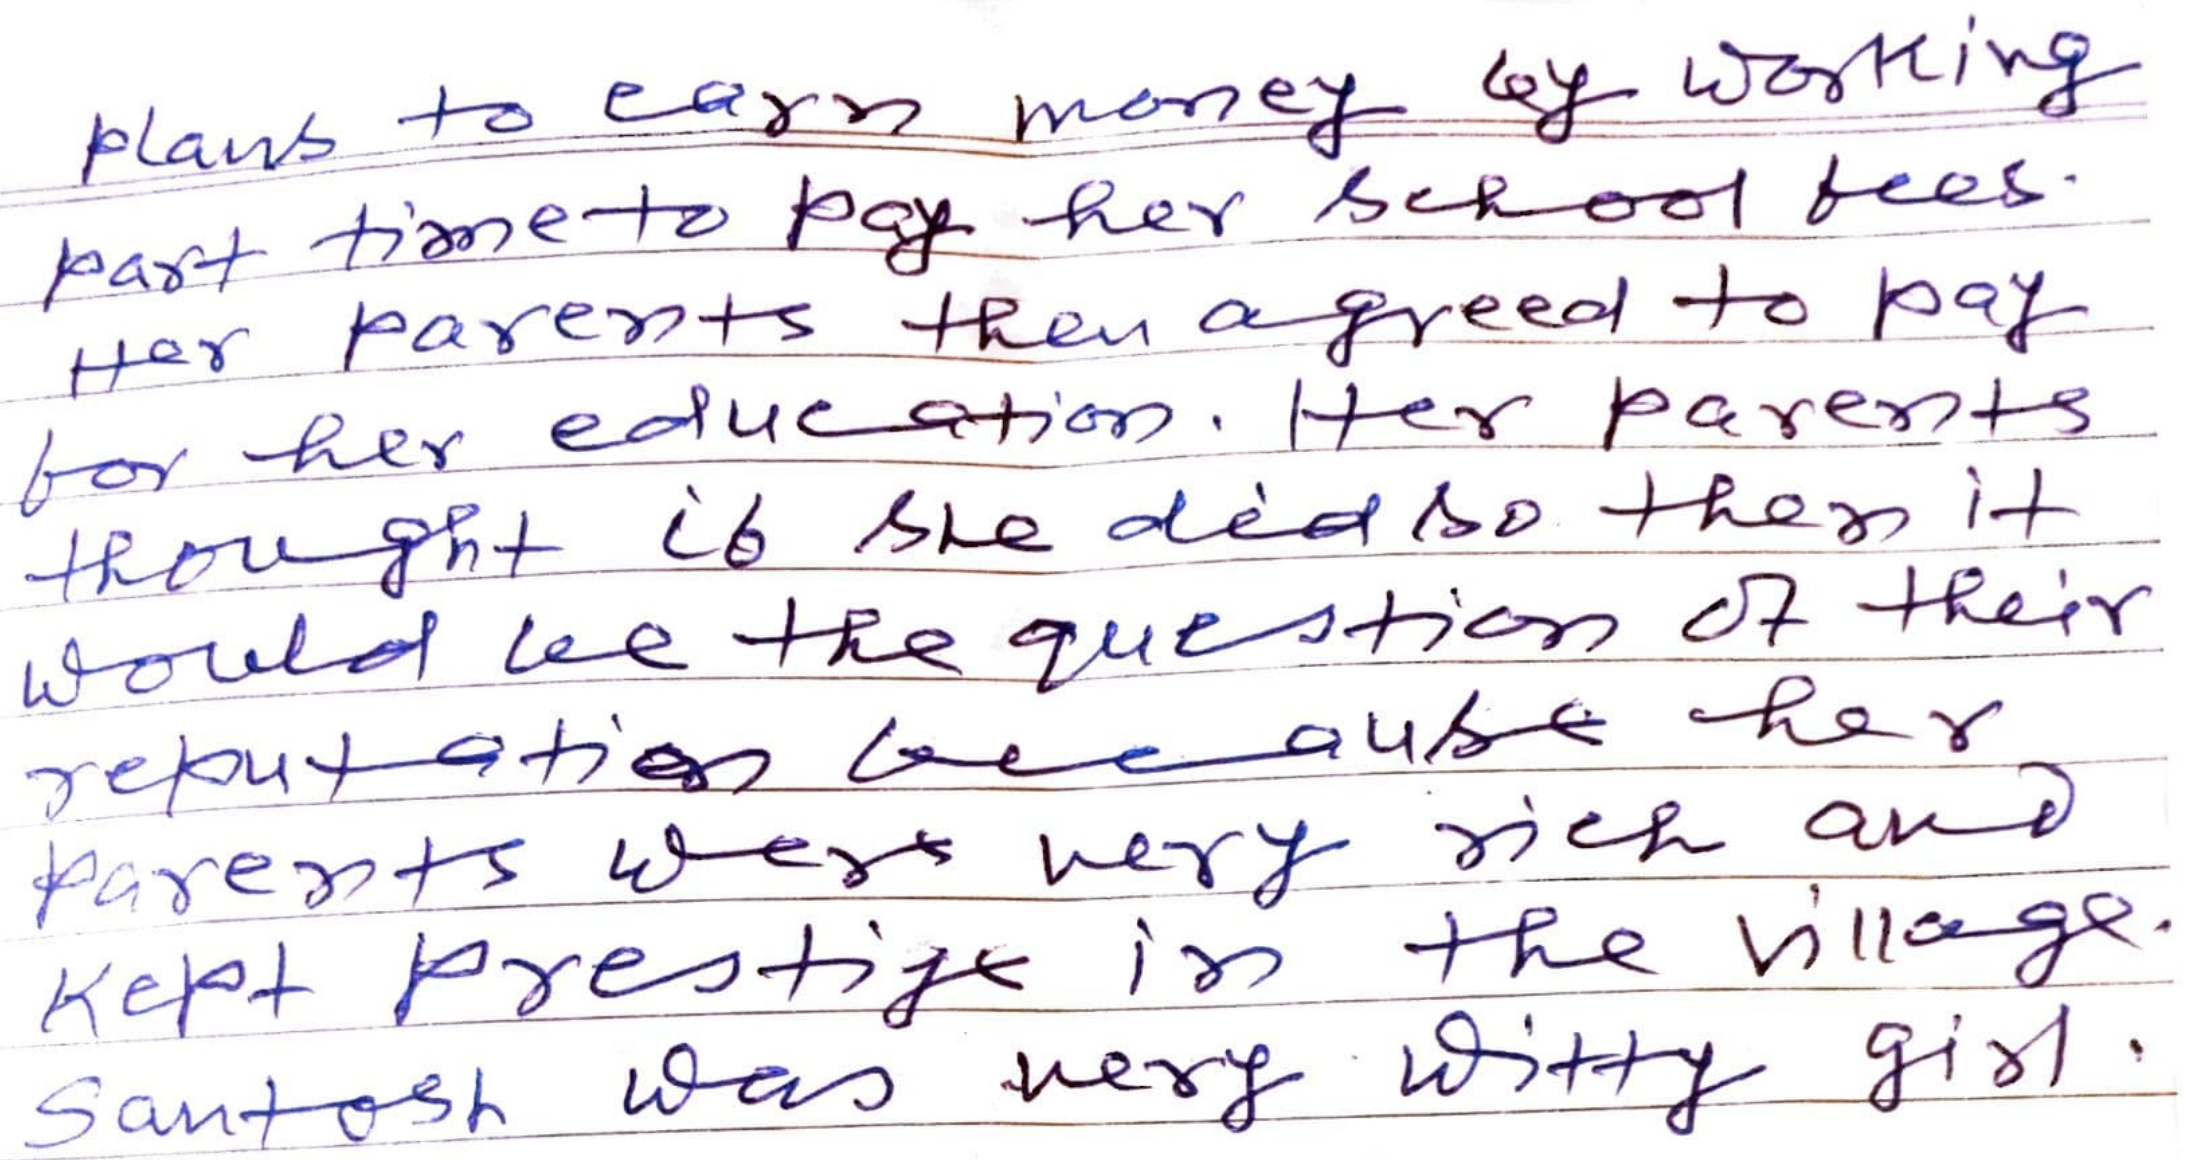 plans to earn money by working
part time to pay her school fees.
Her parents then agreed to pay
for her education. Her parents
thought if she did so then it
would be the question of their
reputation because her
parents were very rich and
kept prestige in the village.
Santosh was very witty girl.